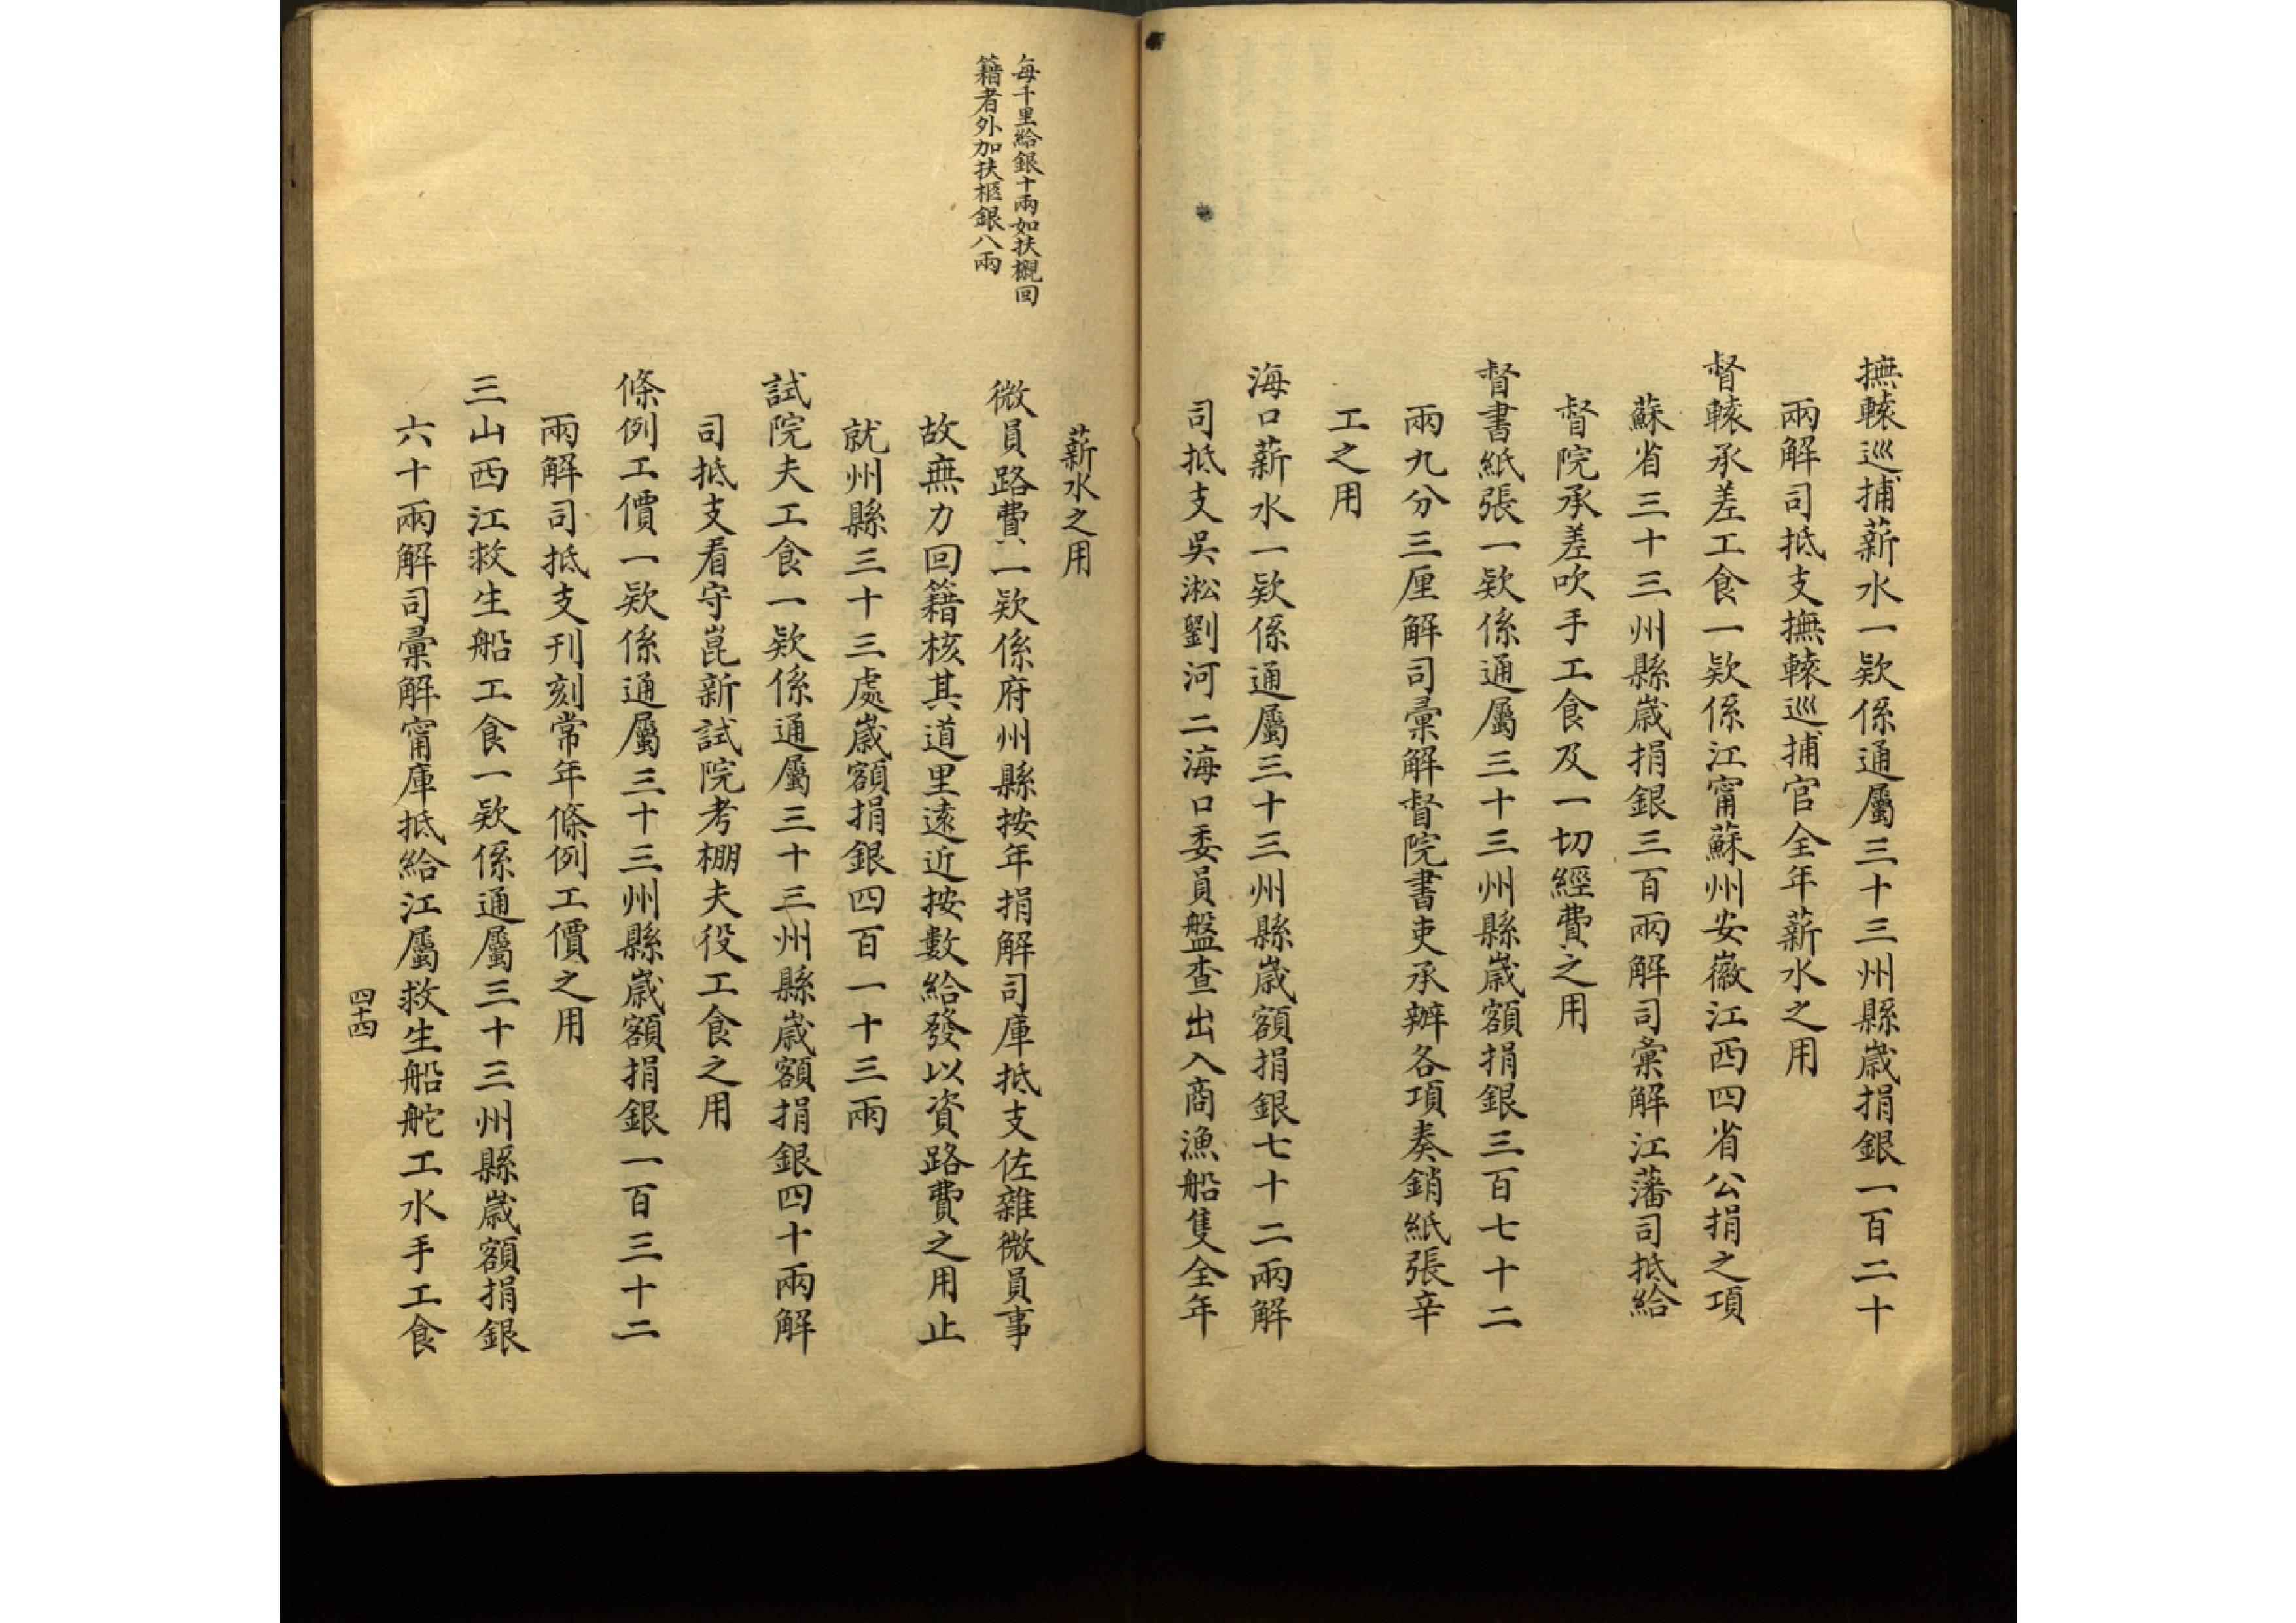 撫轅巡捕薪水一欵係通屬三十三州縣歲捐銀一百二十
兩解司抵支撫轅巡捕官全年薪水之用
督轅承差工食一欵係江甯蘇州安徽江西四省公捐之項
蘇省三十三州縣歲捐銀三百兩解司彙解江藩司抵給
督院承差吹手工食及一切經費之用
督書紙張一欵係通屬三十三州縣歲額捐銀三百七十二
兩九分三厘解司彙解督院書吏承辦各項奏銷紙張辛
工之用
海口薪水一欵係通屬三十三州縣歲額捐銀七十二兩解
司抵支吳淞劉河二海口委員盤查出入商漁船隻全年
薪水之用
每千里給銀十兩如扶櫬回
籍者外加扶柩銀八兩
微員路費一欵係府州縣按年捐解司庫抵支佐雜微員事
故無力回籍核其道里遠近按數給發以資路費之用止
就州縣三十三處歲額捐銀四百一十三兩
試院夫工食一欵係通屬三十三州縣歲額捐銀四十兩解
司抵支看守崑新試院考棚夫役工食之用
條例工價一欵係通屬三十三州縣歲額捐銀一百三十二
兩解司抵支刊刻常年條例工價之用
三山西江救生船工食一欵係通屬三十三州縣歲額捐銀
六十兩解司彙解甯庫抵給江屬救生船舵工水手工食
四十四